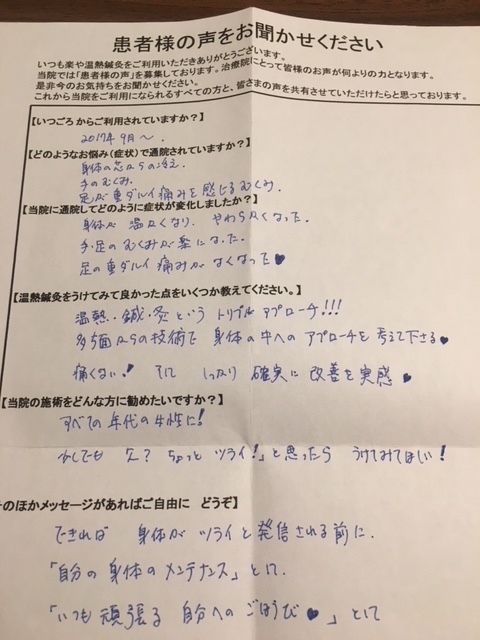 患者様の声をお聞かせください
いつも楽や温熱鍼灸をご利用いただきありがとうございます。
当院では「患者様の声」を募集しております。治療院にとって皆様のお声が何よりの力となります。
是非今のお気持ちをお聞かせください。
これから当院をご利用になられるすべての方と、皆さまの声を共有させていただけたらと思っております。
【いつごろ からご利用されていますか？】
2017年9月～.
【どのようなお悩み（症状）で通院されていますか？】
身体の芯からの冷え.
手のむくみ.
足が重ダルイ痛みを感じるむくみ.
【当院に通院してどのように症状が変化しましたか？】
身体が 温かくなり、やわらかくなった.
手・足のむくみが楽になった.
足の重ダルイ痛みがなくなった♥
【温熱鍼灸をうけてみて良かった点をいくつか教えてください。】
温熱・鍼・灸という トリプルアプローチ!!!
多方面からの技術で 身体の中への アプローチを 考えて下さる♥
痛くない! そして しっかり 確実に 改善を実感 ♥
【当院の施術をどんな方に勧めたいですか？】
すべての年代の女性に!
少しでも ん? ちょっと ツライ!」と思ったら うけてみてほしい!
のほかメッセージがあればご自由に どうぞ】
できれば 身体が ツライと発信される前に.
「自分の身体のメンテナンス」として.
「いつも頑張る 自分への ごほうび♥」として